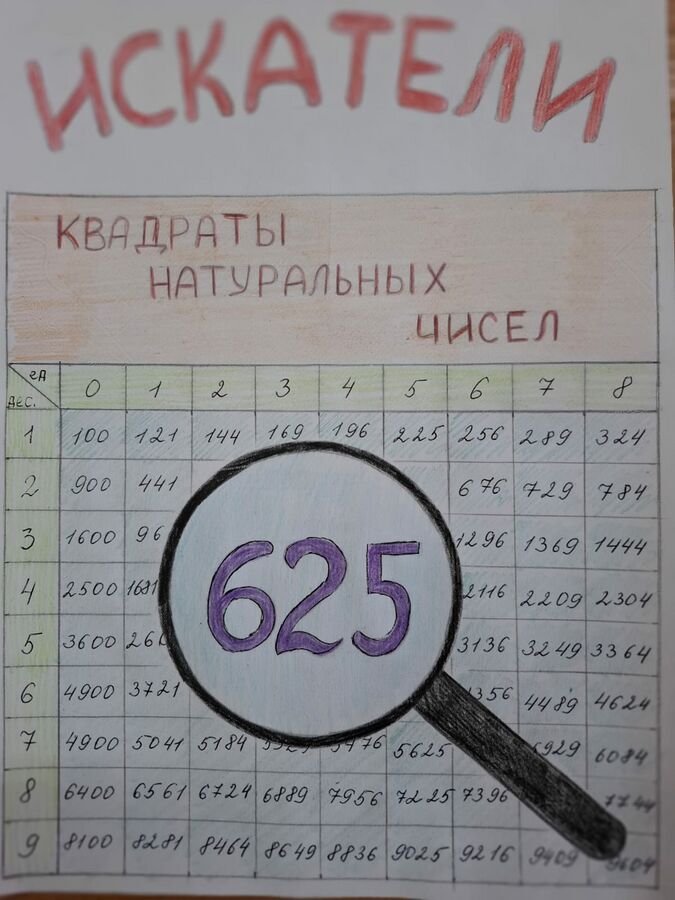 ИСКАТЕЛИ
КВАДРАТЫ
НАТУРАЛЬНЫХ
ЧИСЕЛ
ед
дес. 0 1 2 3 4 5 6 7 8
1 100 121 144 169 196 225 256 289 324
2 900 441 676 729 784
3 1600 96 1296 1369 1444
625
4 2500 1681 2116 2209 2304
5 3600 260 3136 3249 3364
6 4900 3721 4356 4489 4624
7 4900 5041 5184 5329 5476 5625 5929 6084
8 6400 6561 6724 6889 7956 7225 7396 7744
9 8100 8281 8464 8649 8836 9025 9216 9409 9604